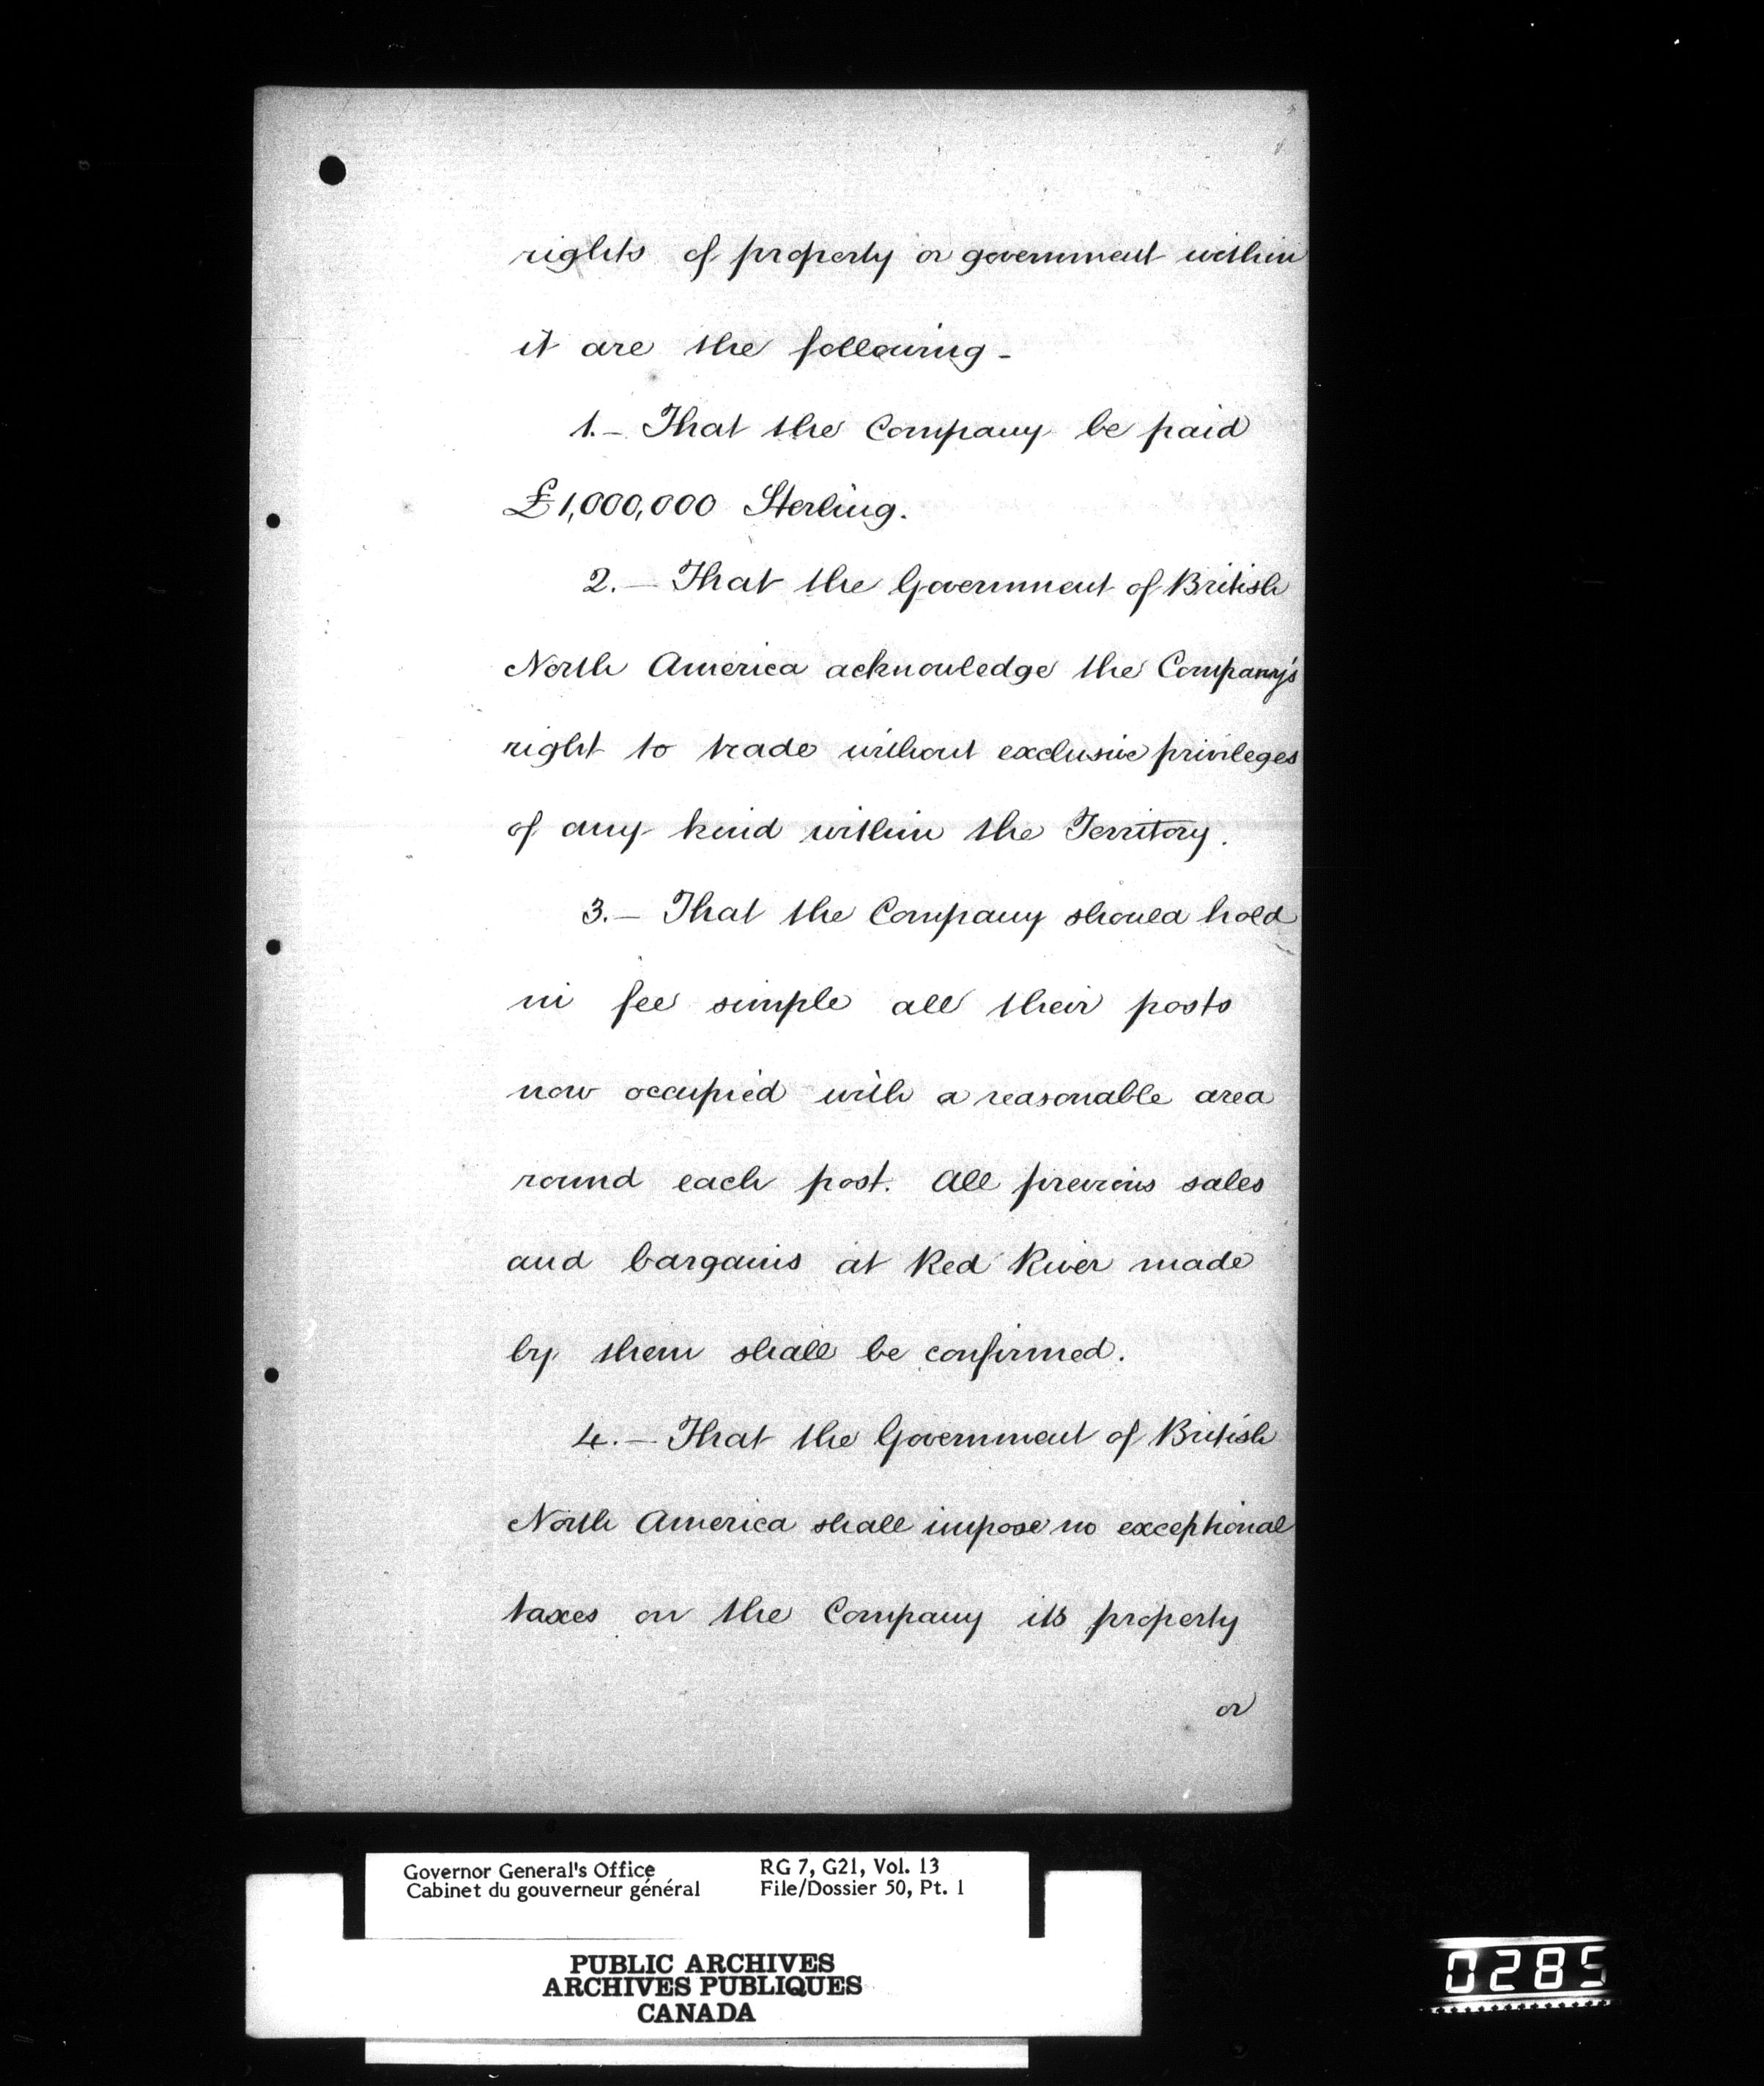 rights of property or government within
it are the following -
1. - That the Company be paid
£1,000,000 Sterling.
2. - That the Government of British
North America acknowledge the Company's
right to trade without exclusive privileges
of any kind within the Territory.
3. - That the Company should hold
in fee simple all their posts
now occupied with a reasonable area
round each post. All previous sales
and bargains at Red River made
by them shall be confirmed.
4. - That the Government of British
North America shall impose no exceptional
taxes on the Company its property
or
Governor General's Office RG 7, G21, Vol. 13
Cabinet du gouverneur général File/Dossier 50, Pt. 1
PUBLIC ARCHIVES
ARCHIVES PUBLIQUES
CANADA
0285